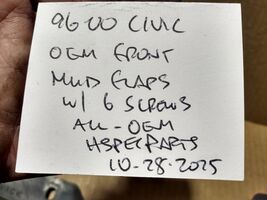 96-00 CIVIC
OEM FRONT
MUD FLAPS
W/ 6 SCREWS
ALL-OEM
HSPECPARTS
10-28-2025